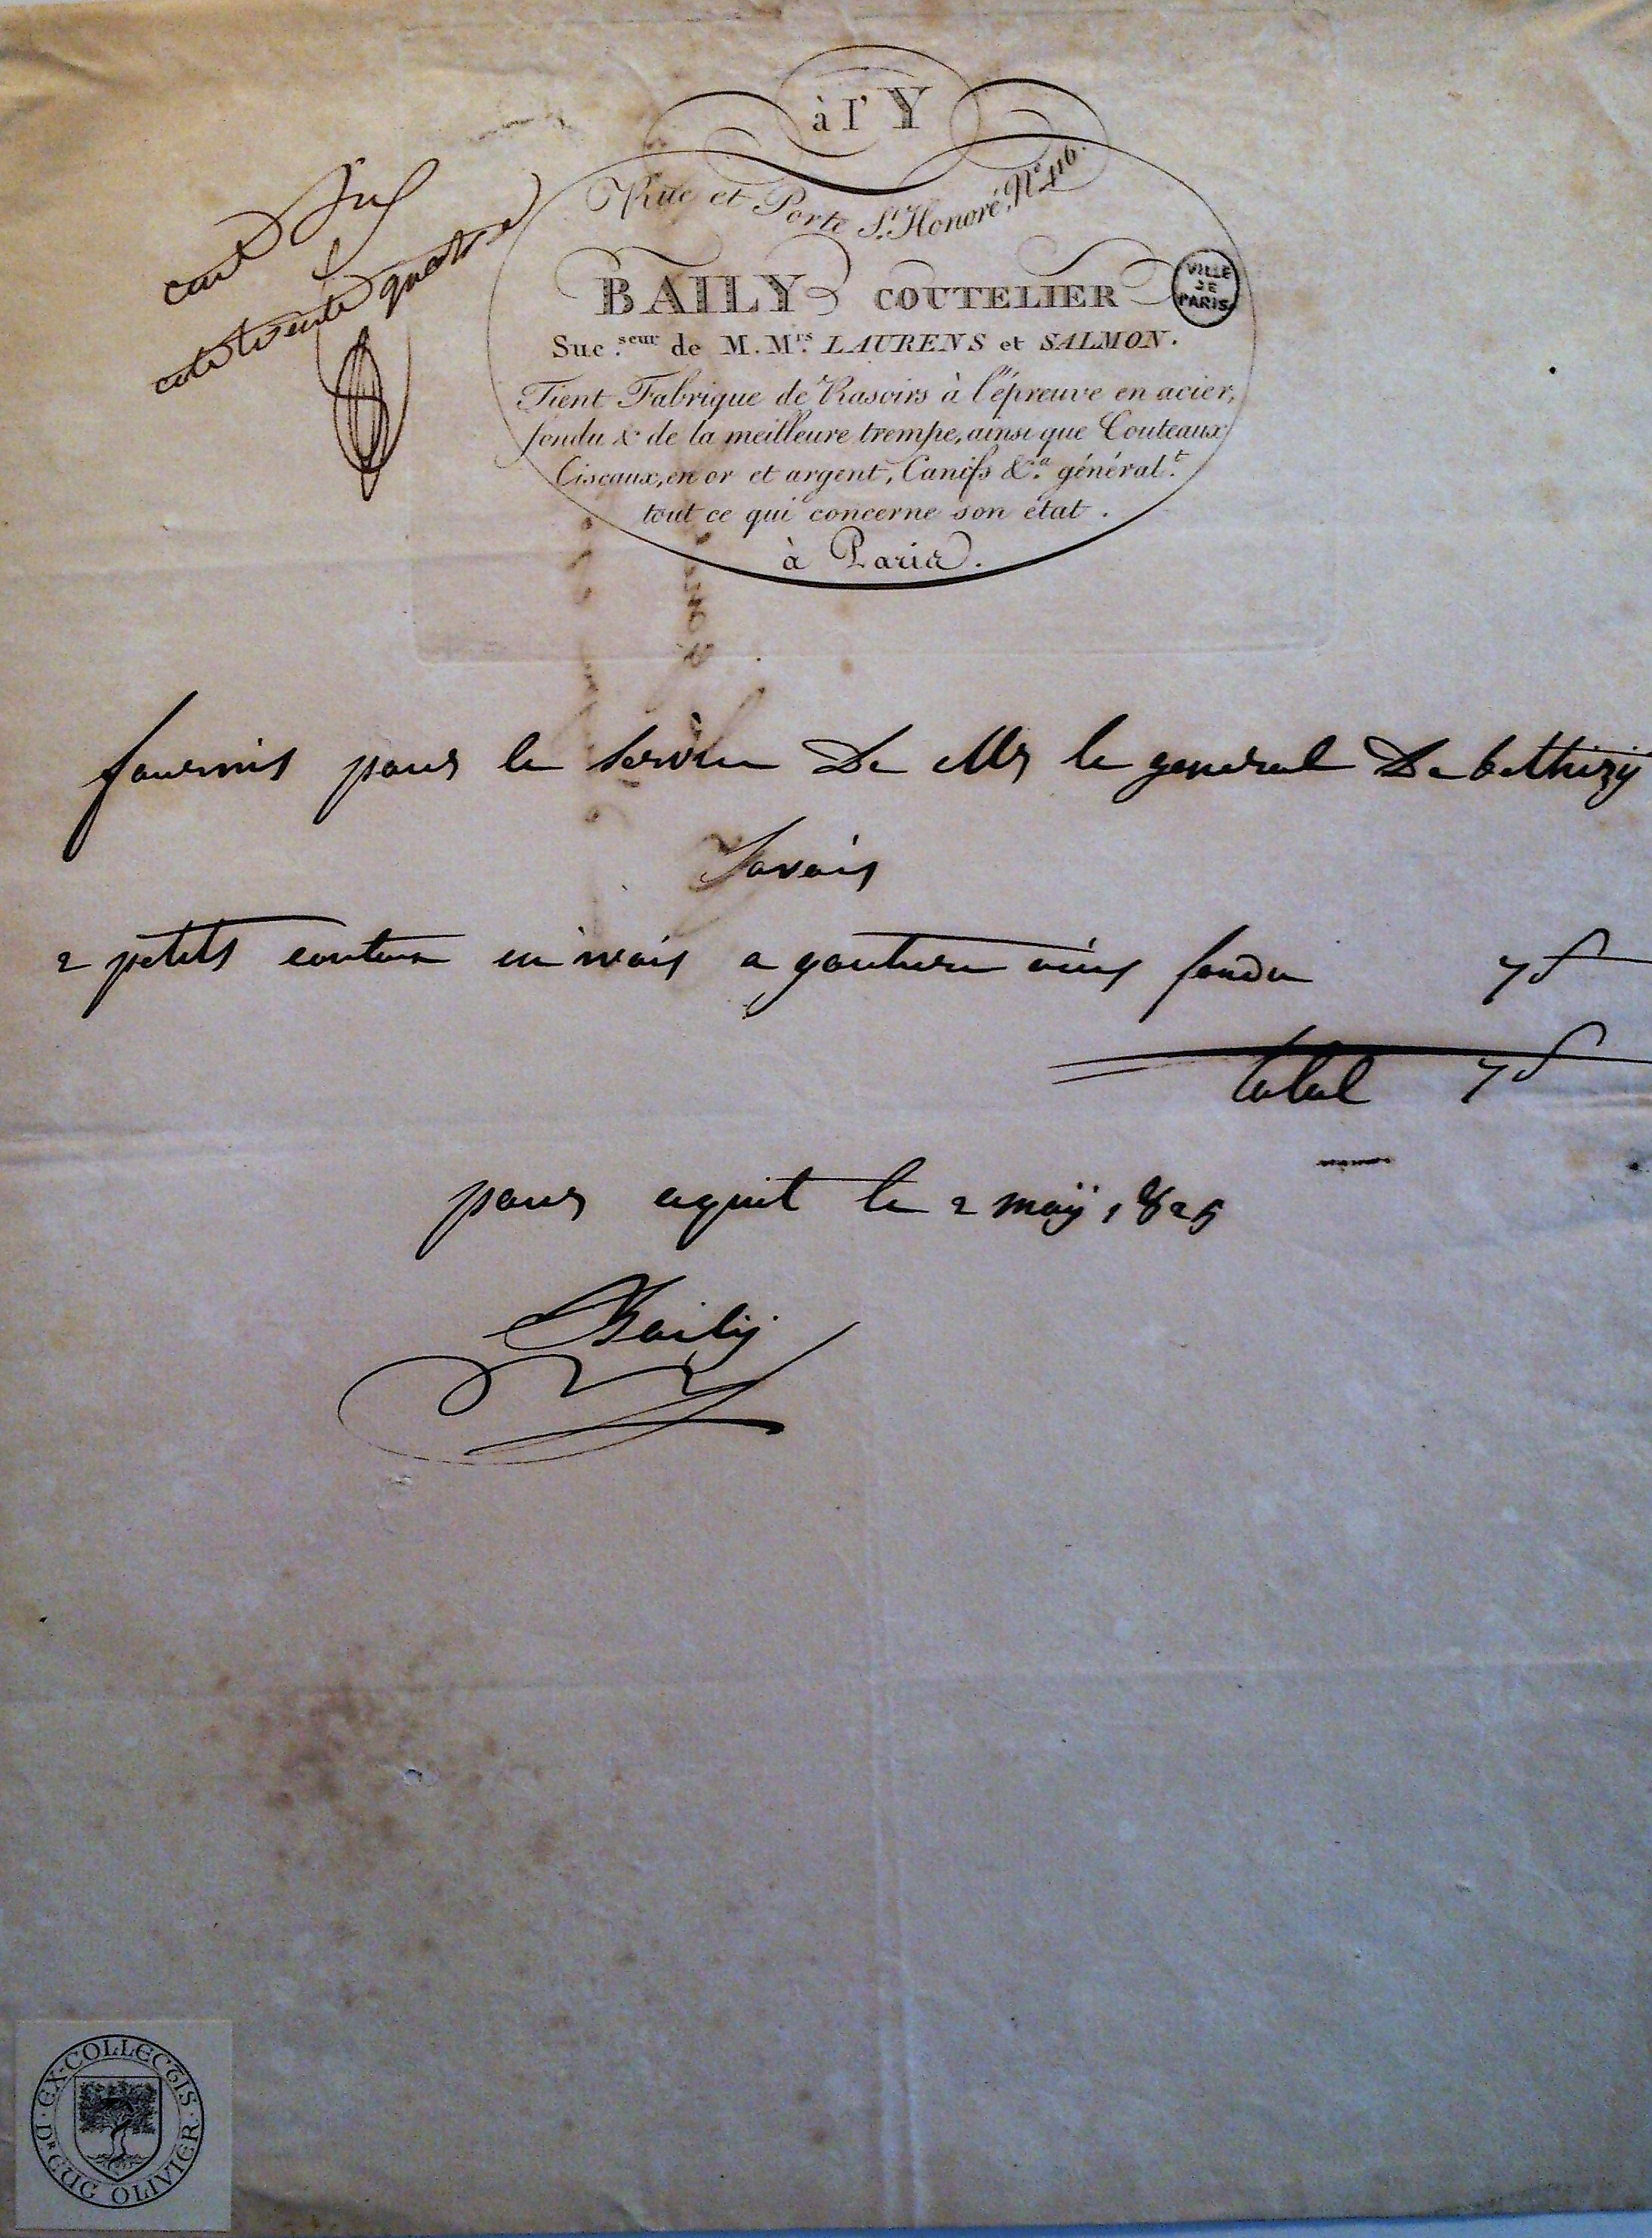 à l'Y
Rue et Porte St. Honoré, No. 416.
BAILY COUTELIER
VILLE
DE
PARIS
Suc.seur de M.Mrs. LAURENS et SALMON.
Tient Fabrique de Rasoirs à l'épreuve en acier,
fondu & de la meilleure trempe, ainsi que Couteaux
Ciseaux, en or et argent, Canifs &.a général.t
tout ce qui concerne son état.
à Paris.
cote trente quatre
fournis pour le service De Mr le general De bethizy
Savoir
2 petits couteau en ivoir a gouture acier fondu 7f
total 7f
pour aquit le 2 maÿ 1825
Baily
EX·COLLECTIS·
DR EUG OLIVIER